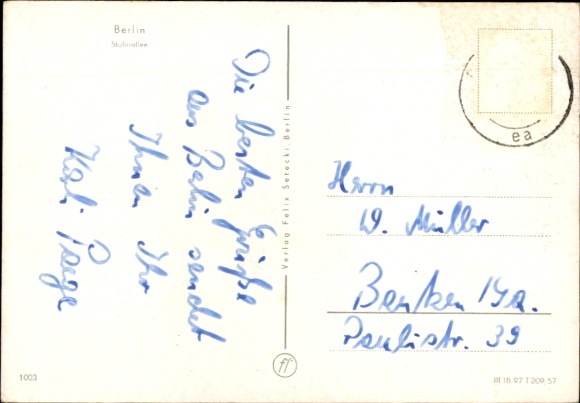 Berlin
Stalinallee
Die besten Grüße
aus Berlin sendet
Ihnen Ihr
Karli Paege
Verlag Felix Setecki Berlin
ea
Herrn
W. Müller
Paulistr. 39
ff
1003
III 18 97 T 209 57